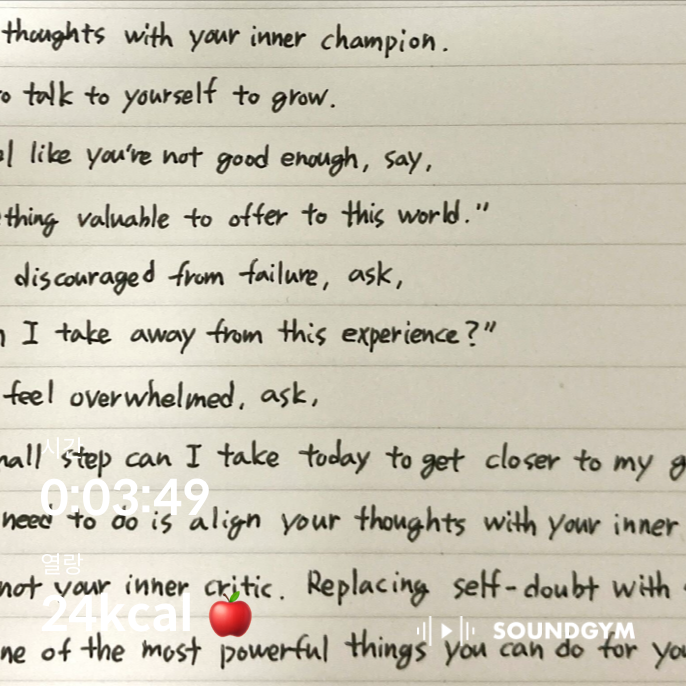 thoughts with your inner champion.
o talk to yourself to grow.
l like you're not good enough, say,
thing valuable to offer to this world."
discouraged from failure, ask,
I take away from this experience?"
feel overwhelmed, ask,
시간
all step can I take today to get closer to my g
0:03:49
need to do is align your thoughts with your inner
열량
not your inner critic. Replacing self-doubt with
24kcal
SOUNDGYM
ne of the most powerful things you can do for yo